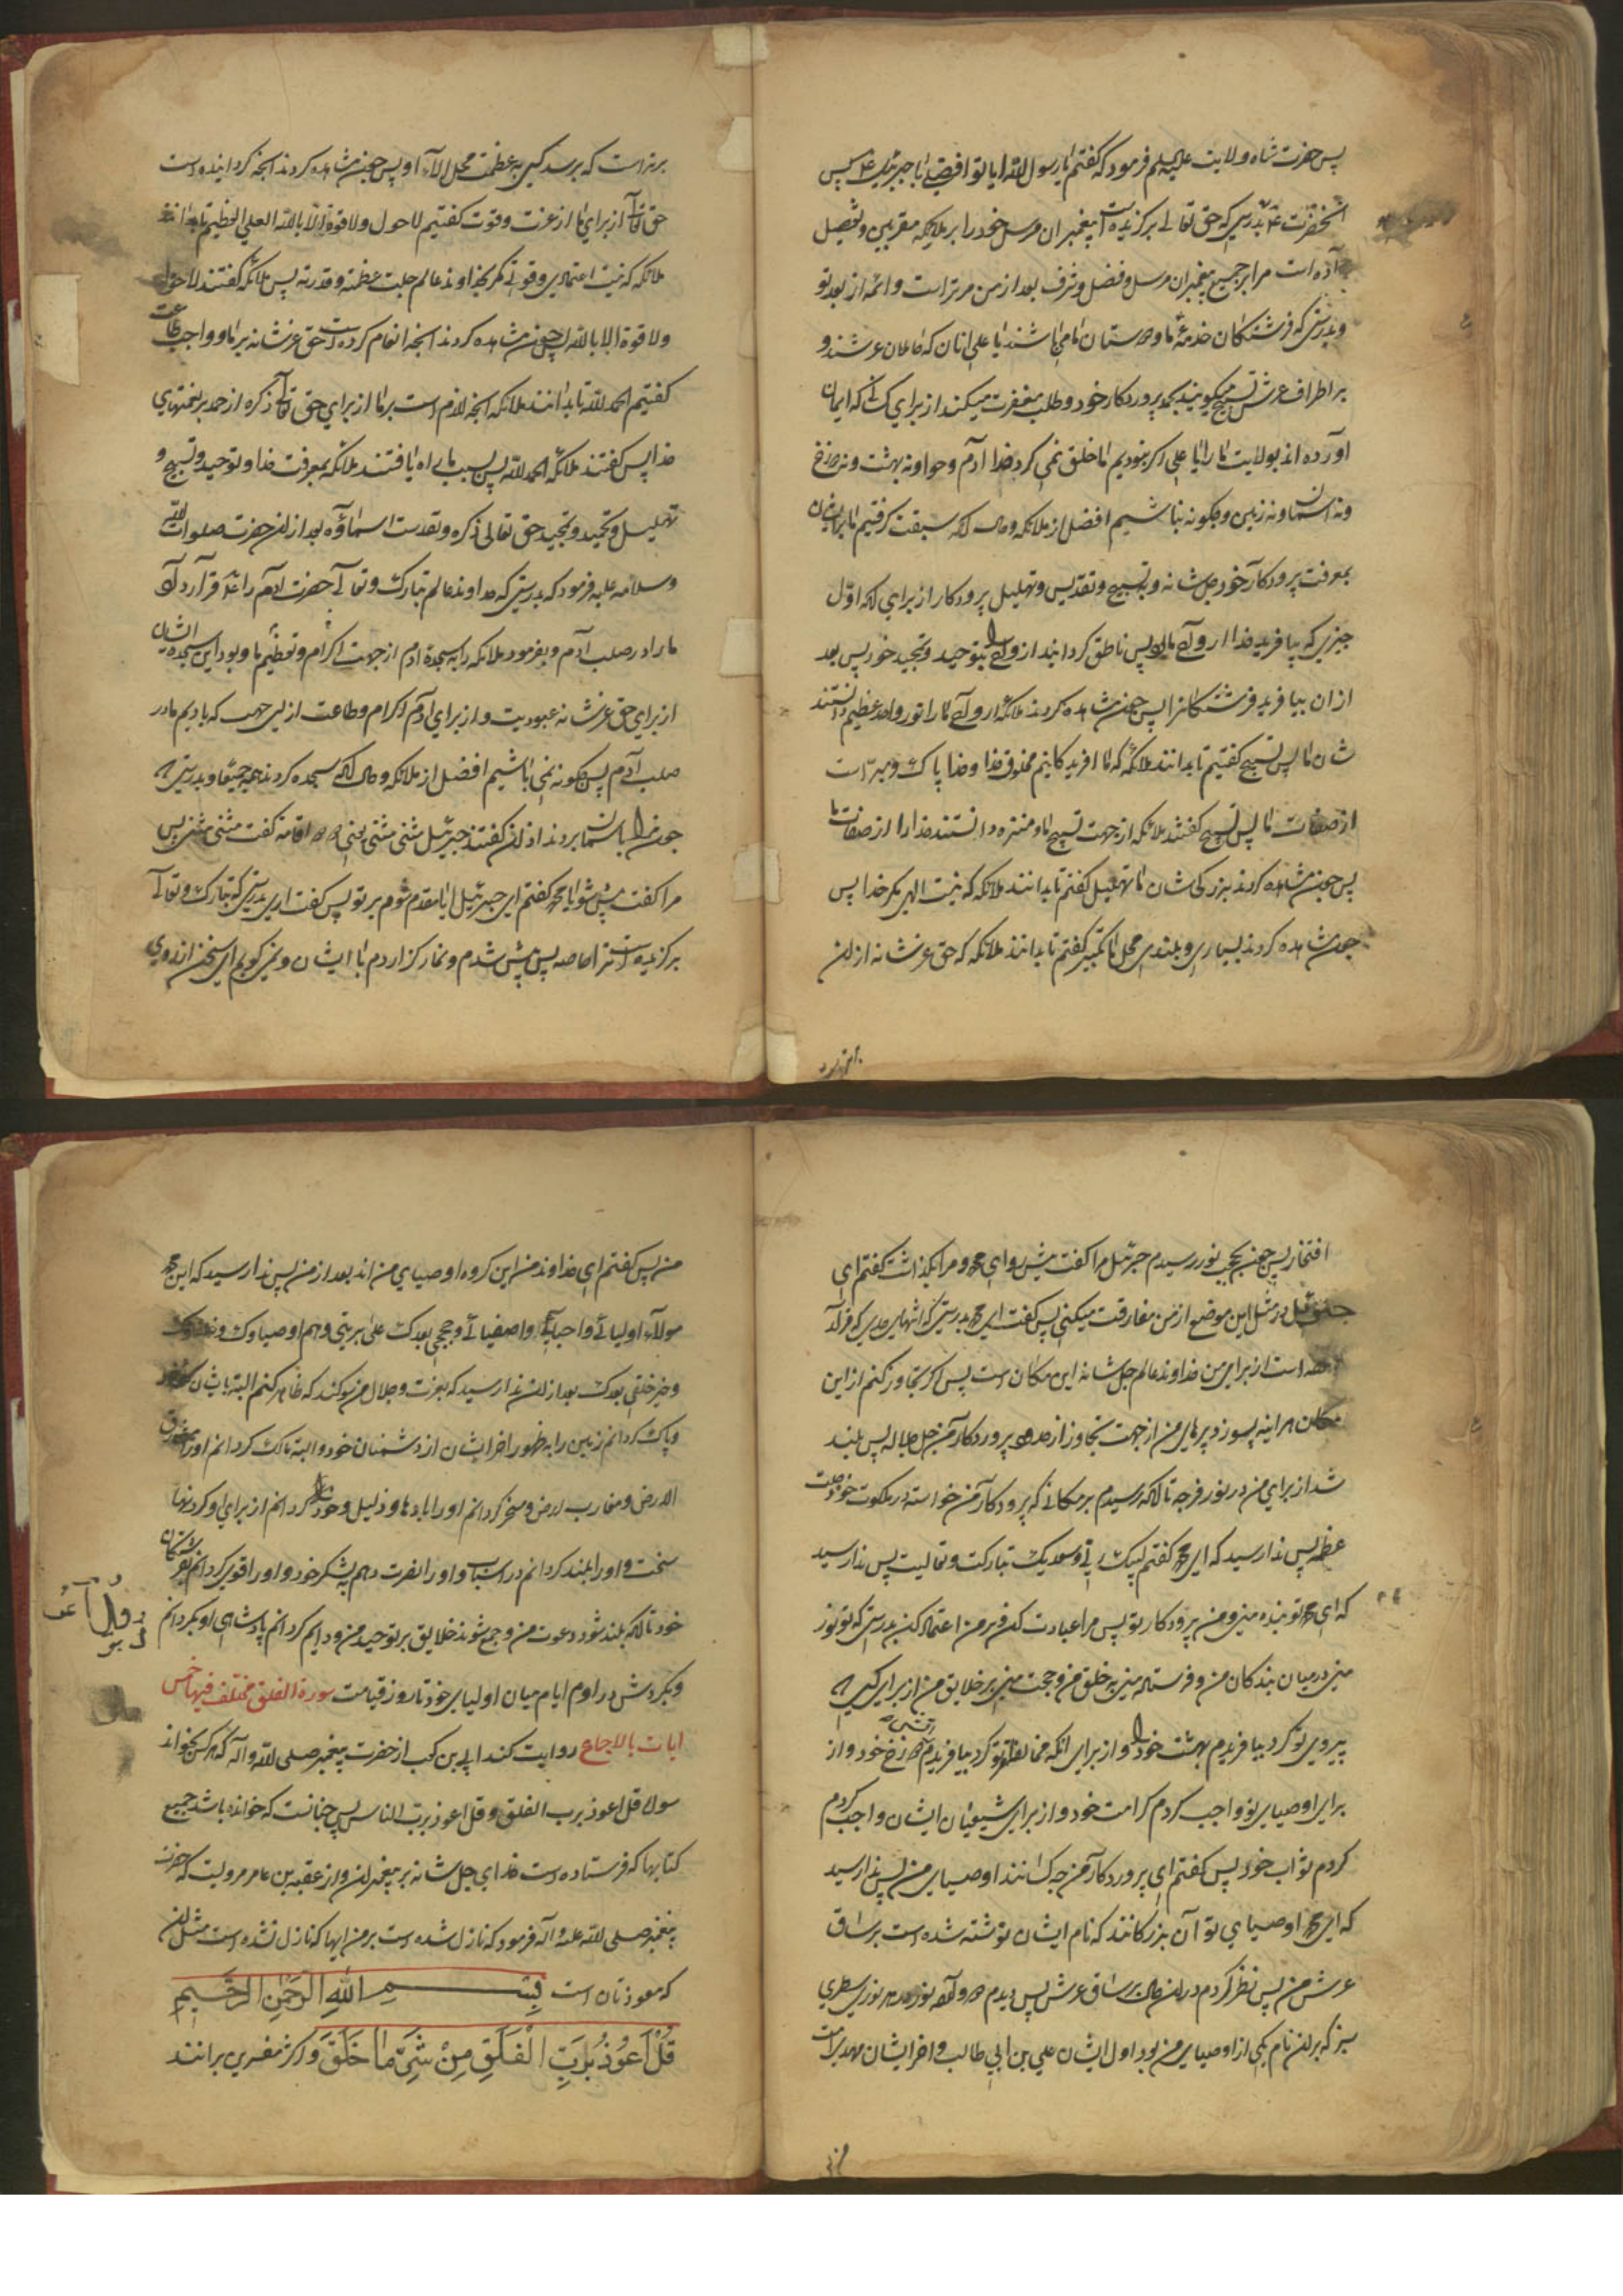 پس حضرت شاه ولایت علیه السلم فرمود که گفتم یا رسول الله ایا تو افضلی یا جبرئیل ع پس
انحضرت ع بدرستی که حق تعالی برکزیده است پیغمبران مرسل خود را بر ملایکه مقربین و تفضیل
داده است مرا بر جمیع پیغمبران مرسل و فضل و شرف بعد از من مر تراست و ائمه از بعد تو
و بدرستی که فرشتگان خدمه ما و دوستان ما می باشند یا علی انان که حاملان عرشند و
بر اطراف عرش تسبیح میکویند بحمد پروردکار خود و طلب مغفرت میکنند از برای کسانی که ایمان
آورده اند بولایت ما را یا علی اکر نبودیم ما خلق نمی کرد خدا آدم و حوا و نه بهشت و نه دوزخ
و نه اسمان و نه زمین و چکونه نباشیم افضل از ملائکه و حال انکه سبقت کرفتیم ما بر ایشان
بمعرفت پروردکار خود جل شانه و بتسبیح و تقدیس و تهلیل پروردکار از برای انکه اول
چیزی که بیافرید خدا ارواح ما بود پس ناطق کردانید ارواح ما را بتوحید و تمجید خود پس بعد
از ان بیافرید فرشتگانرا پس چون مشاهده کردند ملائکه ارواح ما را نور واحد عظیم دانستند
شان ما پس تسبیح گفتیم تا بدانند ملائکه که ما افریدکانیم مخلوق خدا و خدا پاک و مبراست
از صفات ما پس تسبیح گفتند ملائکه از جهت تسبیح ما و منزه دانستند خدا را از صفات ما
پس چون مشاهده کردند بزرکی شان ما تهلیل گفتیم تا بدانند ملائکه که نیست الهی مکر خدا پس
چون مشاهده کردند بسیاری و بلندی محل ما تکبیر گفتیم تا بدانند ملائکه که حق عز شانه از ان
برتراست که برسد کسی به عظمت محل الا او پس چون مشاهده کردند انچه کردانیده است
حق تعالی از برای ما از عزت و قوت گفتیم لا حول ولا قوة الا بالله العلی العظیم تا بدانند
ملائکه که نیست اعتمادی و قوتی مکر بخداوند عالم جلت عظمته و قدرته پس ملائکه گفتند لا حول
ولا قوة الا بالله پس چون مشاهده کردند انچه انعام کرده است حق عز شانه بر ما و واجب طاعت
گفتیم الحمد لله تا بدانند ملائکه انچه لازم است بر ما از برای حق تعالی ذکره از حمد بر نعمتهای
خدا پس گفتند ملائکه الحمد لله پس بسبب ما راه یافتند ملائکه بمعرفت خدا و توحید و تسبیح و
تهلیل و تحمید و تمجید حق تعالی ذکره و تقدست اسماؤه بعد از ان حضرت صلوات الله
و سلامه علیه فرمود که بدرستی که خداوند عالم تبارک و تعالی حضرت ادم را خلق
ما را در صلب آدم و بفرمود ملائکه را به سجده ادم از جهت اکرام و تعظیم ما و بود این سجده ایشان
از برای حق عز شانه عبودیت و از برای آدم اکرام و طاعت از این جهت که بودیم ما در
صلب آدم پس چکونه نمی باشیم افضل از ملائکه و حال انکه سجده کردند همه جمیعا و بدرستی که
چون مرا باسمان بردند اذان گفتند جبرئیل مثنی مثنی یعنی دو دو اقامة گفت مثنی مثنی پس
مرا گفت پیش شو یا محمد گفتم ای جبرئیل ایا مقدم شوم بر تو پس گفت اری بدرستی که تبارک و تعالی
برکزیده است ترا خاصه پس پیش شدم و نماز کزاردم با ایشان و نمی کویم ای سخن از روی
افتخار پس چون بحجب نور رسیدم جبرئیل مرا گفت پیش رو ای محمد و مرا بکذاشت گفتم ای
جبرئیل در مثل این موضع از من مفارقت میکنی پس گفت ای محمد بدرستی که انتهای حدی که قرار
داده است از برای من خداوند عالم جل شانه این مکان است پس اکر تجاوز کنم از این
مکان هر اینه بسوزد پرهای من از جهت تجاوز از حدود پروردکار من جل جلاله پس بلند
شد از برای من در نور فرجه تا انکه رسیدم بر مکانی که پروردکار من خواسته در ملکوت خود جلت
عظمته پس ندا رسید که ای محمد گفتم لبیک ربی و سعدیک تبارکت و تعالیت پس ندا رسید
که ای محمد تو بنده منی و من پروردکار تو پس مرا عبادت کن و بر من اعتماد کن بدرستی که تو نور
منی در میان بندکان من و فرستاده منی بر خلق من و حجت منی بر خلایق من از برای کسی که
پیروی تو کرد بیافریدم بهشت خود را و از برای انکه مخالفت تو کرد بیافریدم اتش دوزخ خود و از
برای اوصیای تو واجب کردم کرامت خود و از برای شیعیان ایشان واجب کردم
کردم ثواب خود پس گفتم ای پروردکار من چه کسانند اوصیای من پس ندا رسید
که ای محمد اوصیای تو آن بزرکانند که نام ایشان نوشته شده است بر ساق
عرش من پس نظر کردم در ان حال بر ساق عرش پس دیدم دوازده نور در هر نوری سطری
سبز که بر ان نام یکی از اوصیای من بود اول ایشان علی بن ابی طالب و اخر ایشان مهدی امت
من پس گفتم ای خداوند من این کروه اوصیای من اند بعد از من پس ندا رسید که ای محمد
هولاء اولیائی و احبائی و اصفیائی و حججی بعدک علی بریتی و هم اوصیاوک و خلفاوک
و خیر خلقی بعدک بعد از ان ندا رسید که بعزت و جلال من سوکند که ظاهر کنم البته بایشان
و پاک کردانم زمین را به ظهور اخر ایشان از دشمنان خود و البته مالک کردانم او را مشارق
الارض و مغارب ارض و مسخر کردانم او را بادها و ذلیل و خود را کردانم از برای او کردنهای
سخت و او را بلند کردانم در اسباب و او را نصرت دهم به لشکر خود و او را قوی کردانم بفرشتگان
خود تا انکه بلند شود دعوت من و جمع شوند خلایق بر توحید من و دایم کردانم پادشاهی او بکردانم
و بکردش در اورم ایام میان اولیای خود تا روز قیامت سورة الفلق مختلف فیها خمس
ایات بالاجماع روایت کند ابی بن کعب از حضرت پیغمبر صلی الله و آله که هر کس بخواند
سوره قل اعوذ برب الفلق و قل اعوذ برب الناس پس چنانست که خوانده باشد جمیع
کتابها که فرستاده است خدای جل شانه بر پیغمبران و از عقبه بن عامر مرویست که حضرت
پیغمبر صلی الله علیه و اله فرمود که نازل شده است بر من ایها که نازل نشده است مثل ان
که معوذتان است بِسْمِ اللهِ الرَّحْمٰنِ الرَّحِیمِ
قُلْ اَعُوذُ بِرَبِّ الْفَلَقِ مِنْ شَرِّ مَا خَلَقَ و اکثر مفسرین برانند